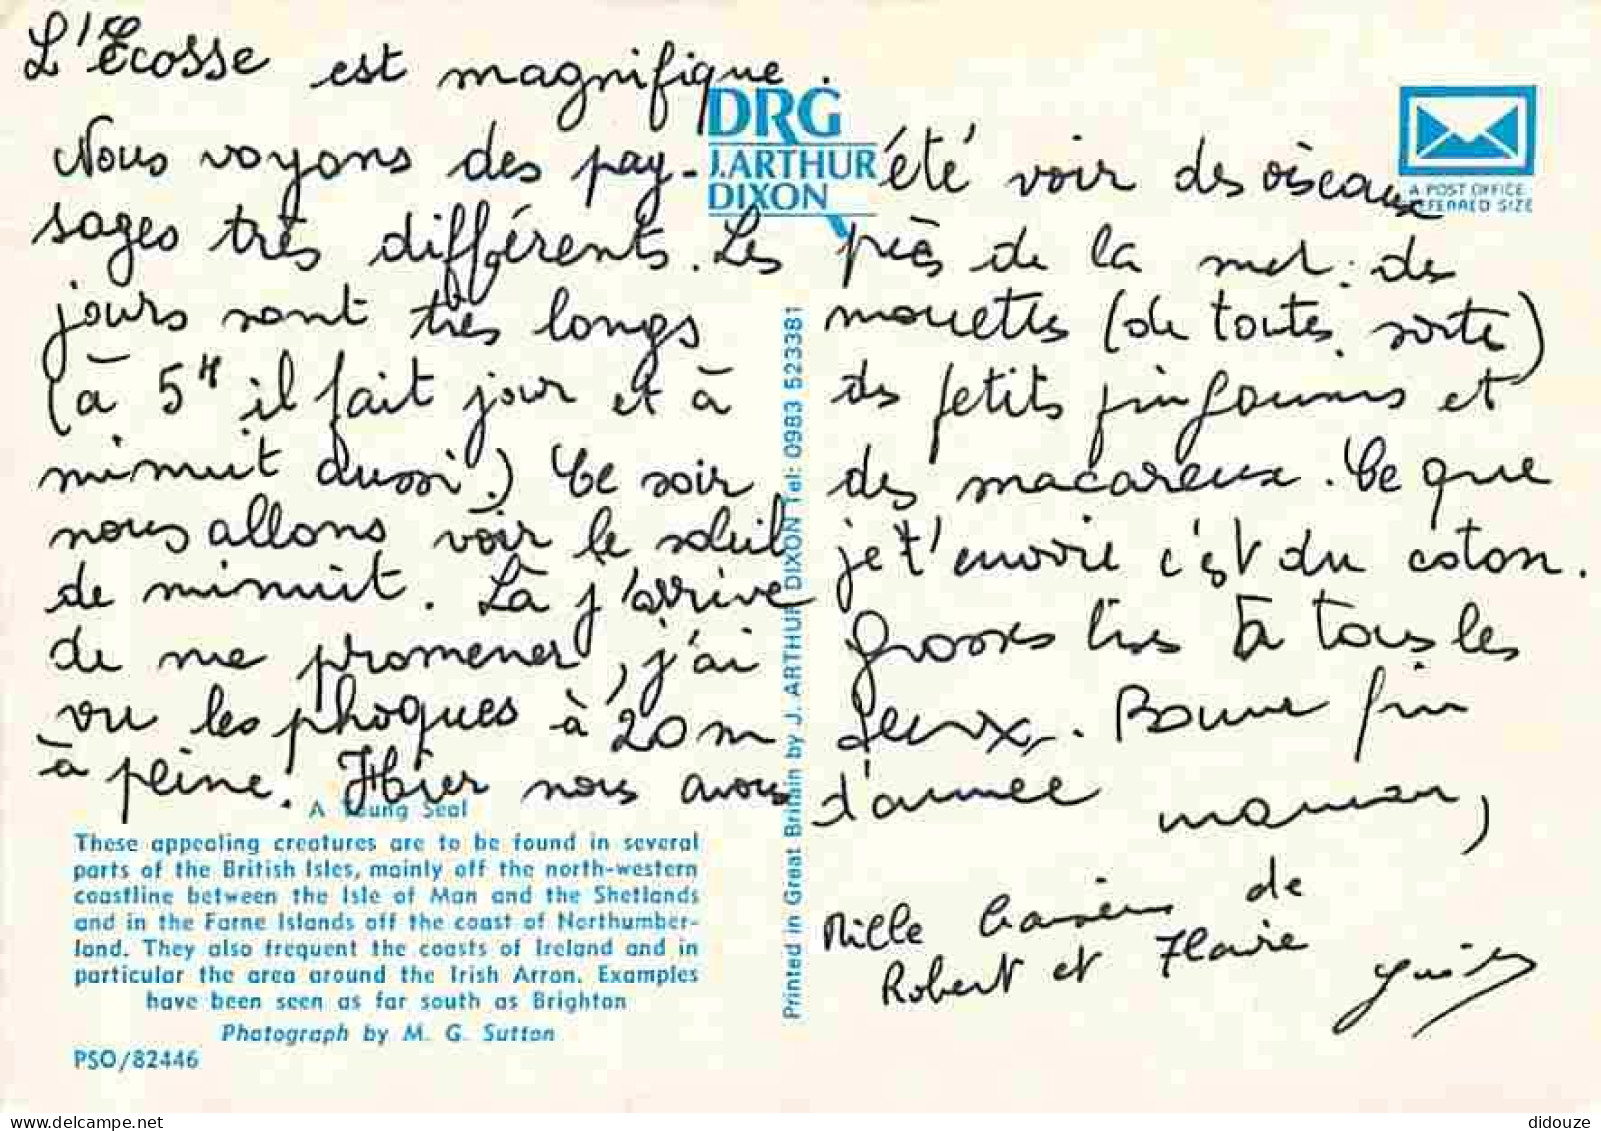 L'Écosse est magnifique.
Nous voyons des pay-
sages très différents. Les
jours sont très longs
(à 5H il fait jour et à
minuit aussi.) Ce soir
nous allons voir le soleil
de minuit. Là j'arrive
de me promener, j'ai
vu les phoques à 20 m
à peine. Hier nous avons
été voir des oiseaux
près de la mer : des
mouettes (de toutes sorte)
des petits pingouins et
des macareux. Ce que
je t'envoie c'est du coton.
Grosses bises à tous les
deux. Bonne fin
d'année maman,
Mille baisers de
Robert et Flavie
DRG
J.ARTHUR
DIXON
A POST OFFICE
PREFERRED SIZE
Printed in Great Britain by J. ARTHUR DIXON Tel: 0983 523381
A Young Seal
These appealing creatures are to be found in several
parts of the British Isles, mainly off the north-western
coastline between the Isle of Man and the Shetlands
and in the Farne Islands off the coast of Northumber-
land. They also frequent the coasts of Ireland and in
particular the area around the Irish Arran. Examples
have been seen as far south as Brighton
Photograph by M. G. Sutton
PSO/82446
didouze